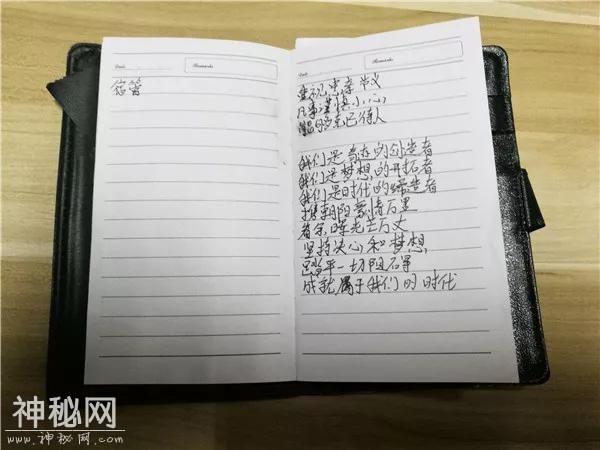 Date
Remarks
Date
Remarks
重视电亲节义
凡事谨慎小心
我们是奇迹的创造者
我们是梦想的开拓者
我们是时代的缔造者
携朝阳豪情万里
着余晖光芒万丈
坚持决心和梦想
踏平一切阻碍
成就属于我们的时代
神秘网
www.神秘网.com